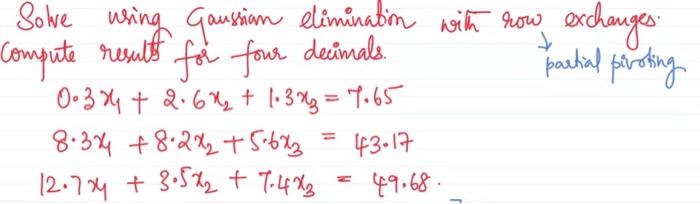 Solve using Gaussian elimination with row exchanges.
Compute results for four decimals.
partial pivoting
0.3x₁ + 2.6x₂ + 1.3x₃ = 7.65
8.3x₁ + 8.2x₂ + 5.6x₃ = 43.17
12.7x₁ + 3.5x₂ + 7.4x₃ = 49.68.